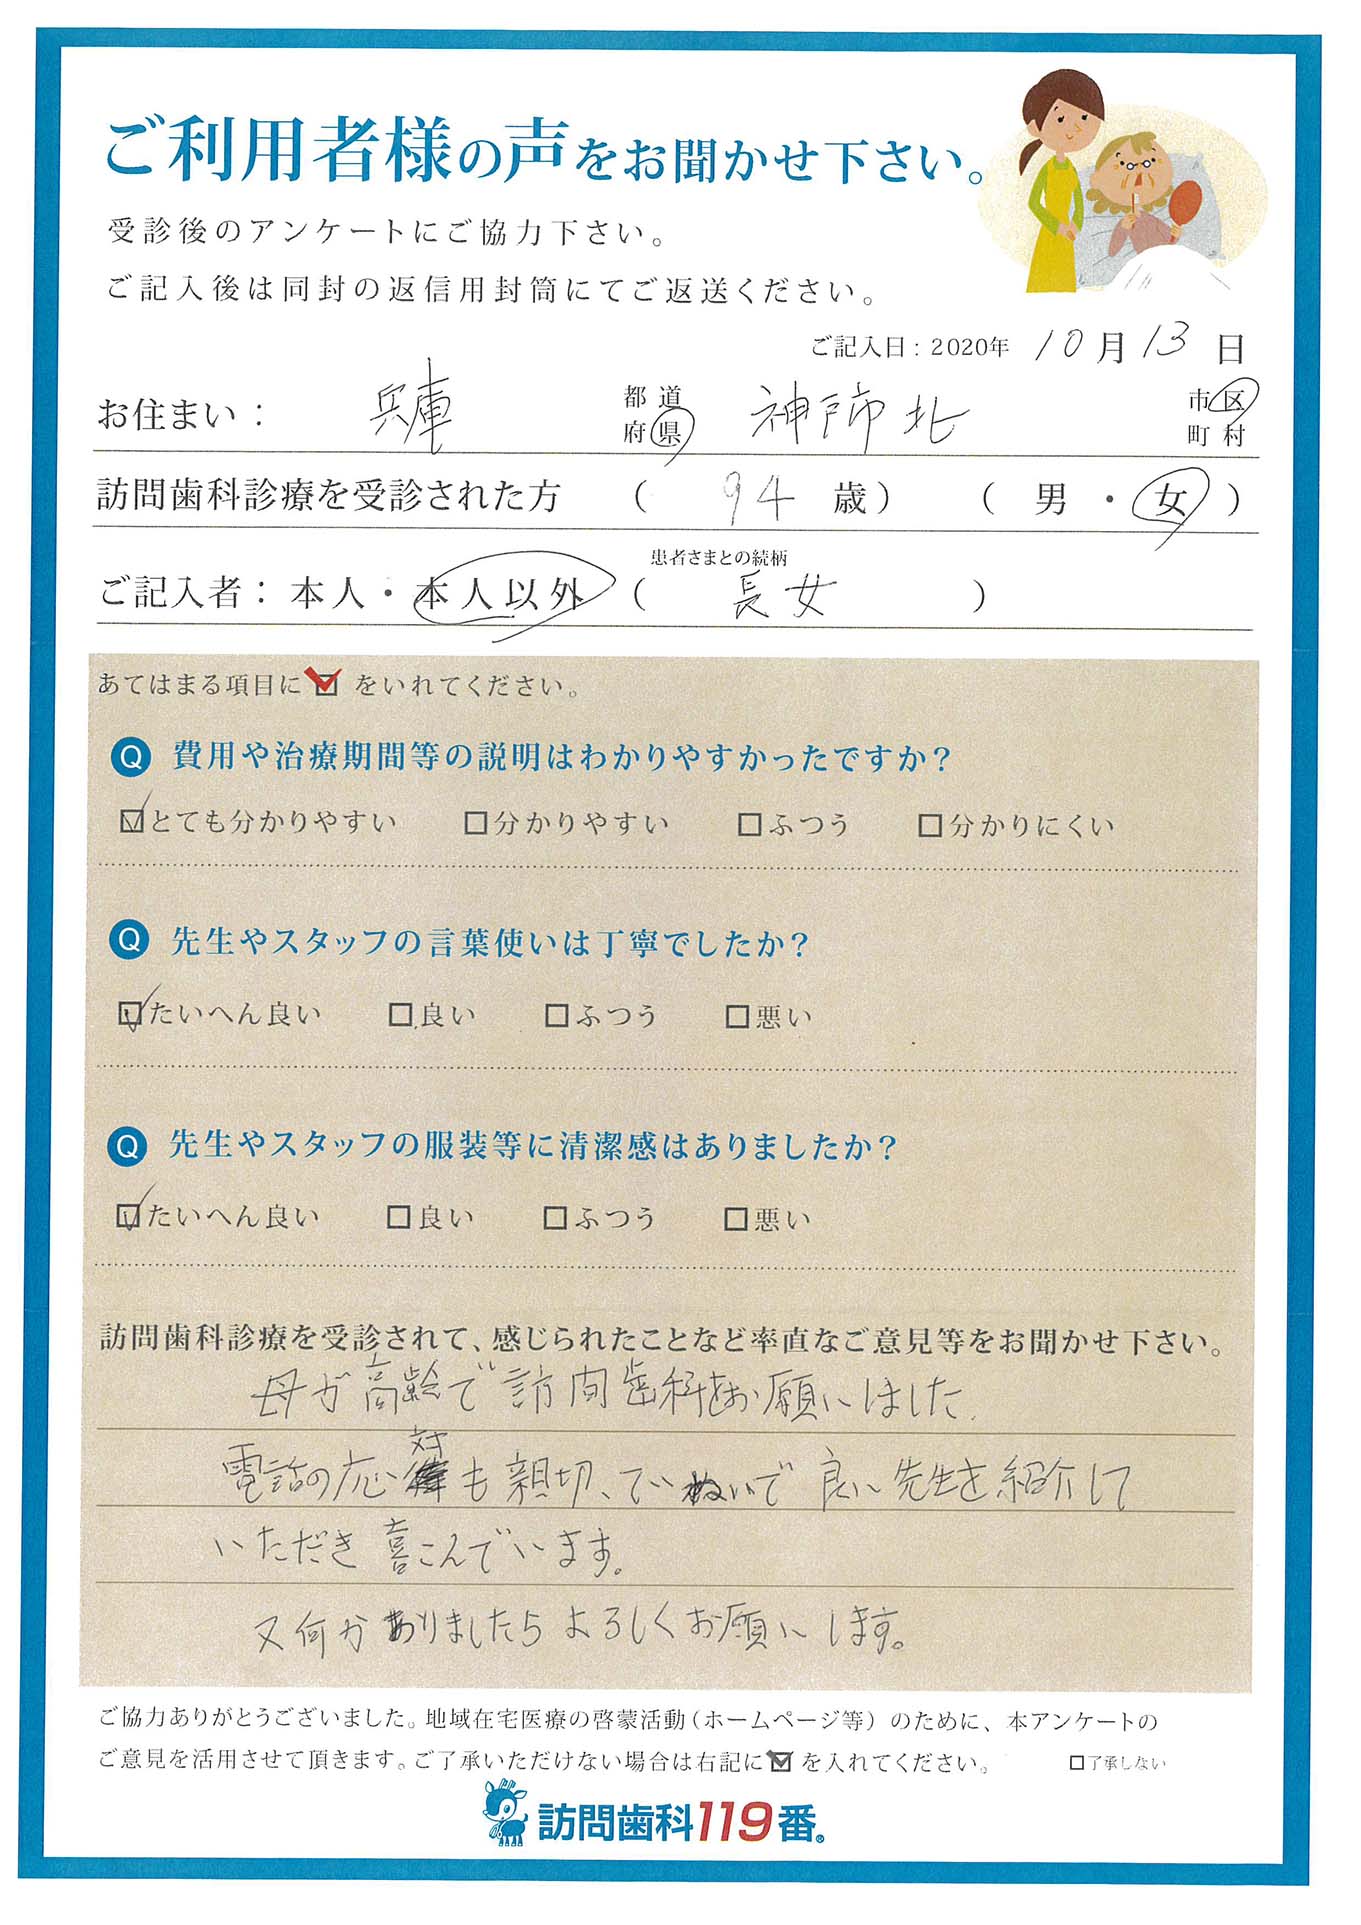 ご利用者様の声をお聞かせ下さい。
受診後のアンケートにご協力下さい。
ご記入後は同封の返信用封筒にてご返送ください。
ご記入日：2020年 10月13日
お住まい： 兵庫 都道府県 神戸市北 市区町村
訪問歯科診療を受診された方 （ 94 歳） （ 男 ・ 女 ）
患者さまとの続柄
ご記入者：本人・本人以外（ 長女 ）
あてはまる項目に☑をいれてください。
Q 費用や治療期間等の説明はわかりやすかったですか？
☑とても分かりやすい □分かりやすい □ふつう □分かりにくい
Q 先生やスタッフの言葉使いは丁寧でしたか？
☑たいへん良い □良い □ふつう □悪い
Q 先生やスタッフの服装等に清潔感はありましたか？
☑たいへん良い □良い □ふつう □悪い
訪問歯科診療を受診されて、感じられたことなど率直なご意見等をお聞かせ下さい。
母が高齢で訪問歯科をお願いしました。
電話の応対も親切、ていねいで良い先生を紹介して
いただき喜こんでいます。
又何かありましたらよろしくお願いします。
ご協力ありがとうございました。地域在宅医療の啓蒙活動（ホームページ等）のために、本アンケートの
ご意見を活用させて頂きます。ご了承いただけない場合は右記に☑を入れてください。 □了承しない
訪問歯科119番®